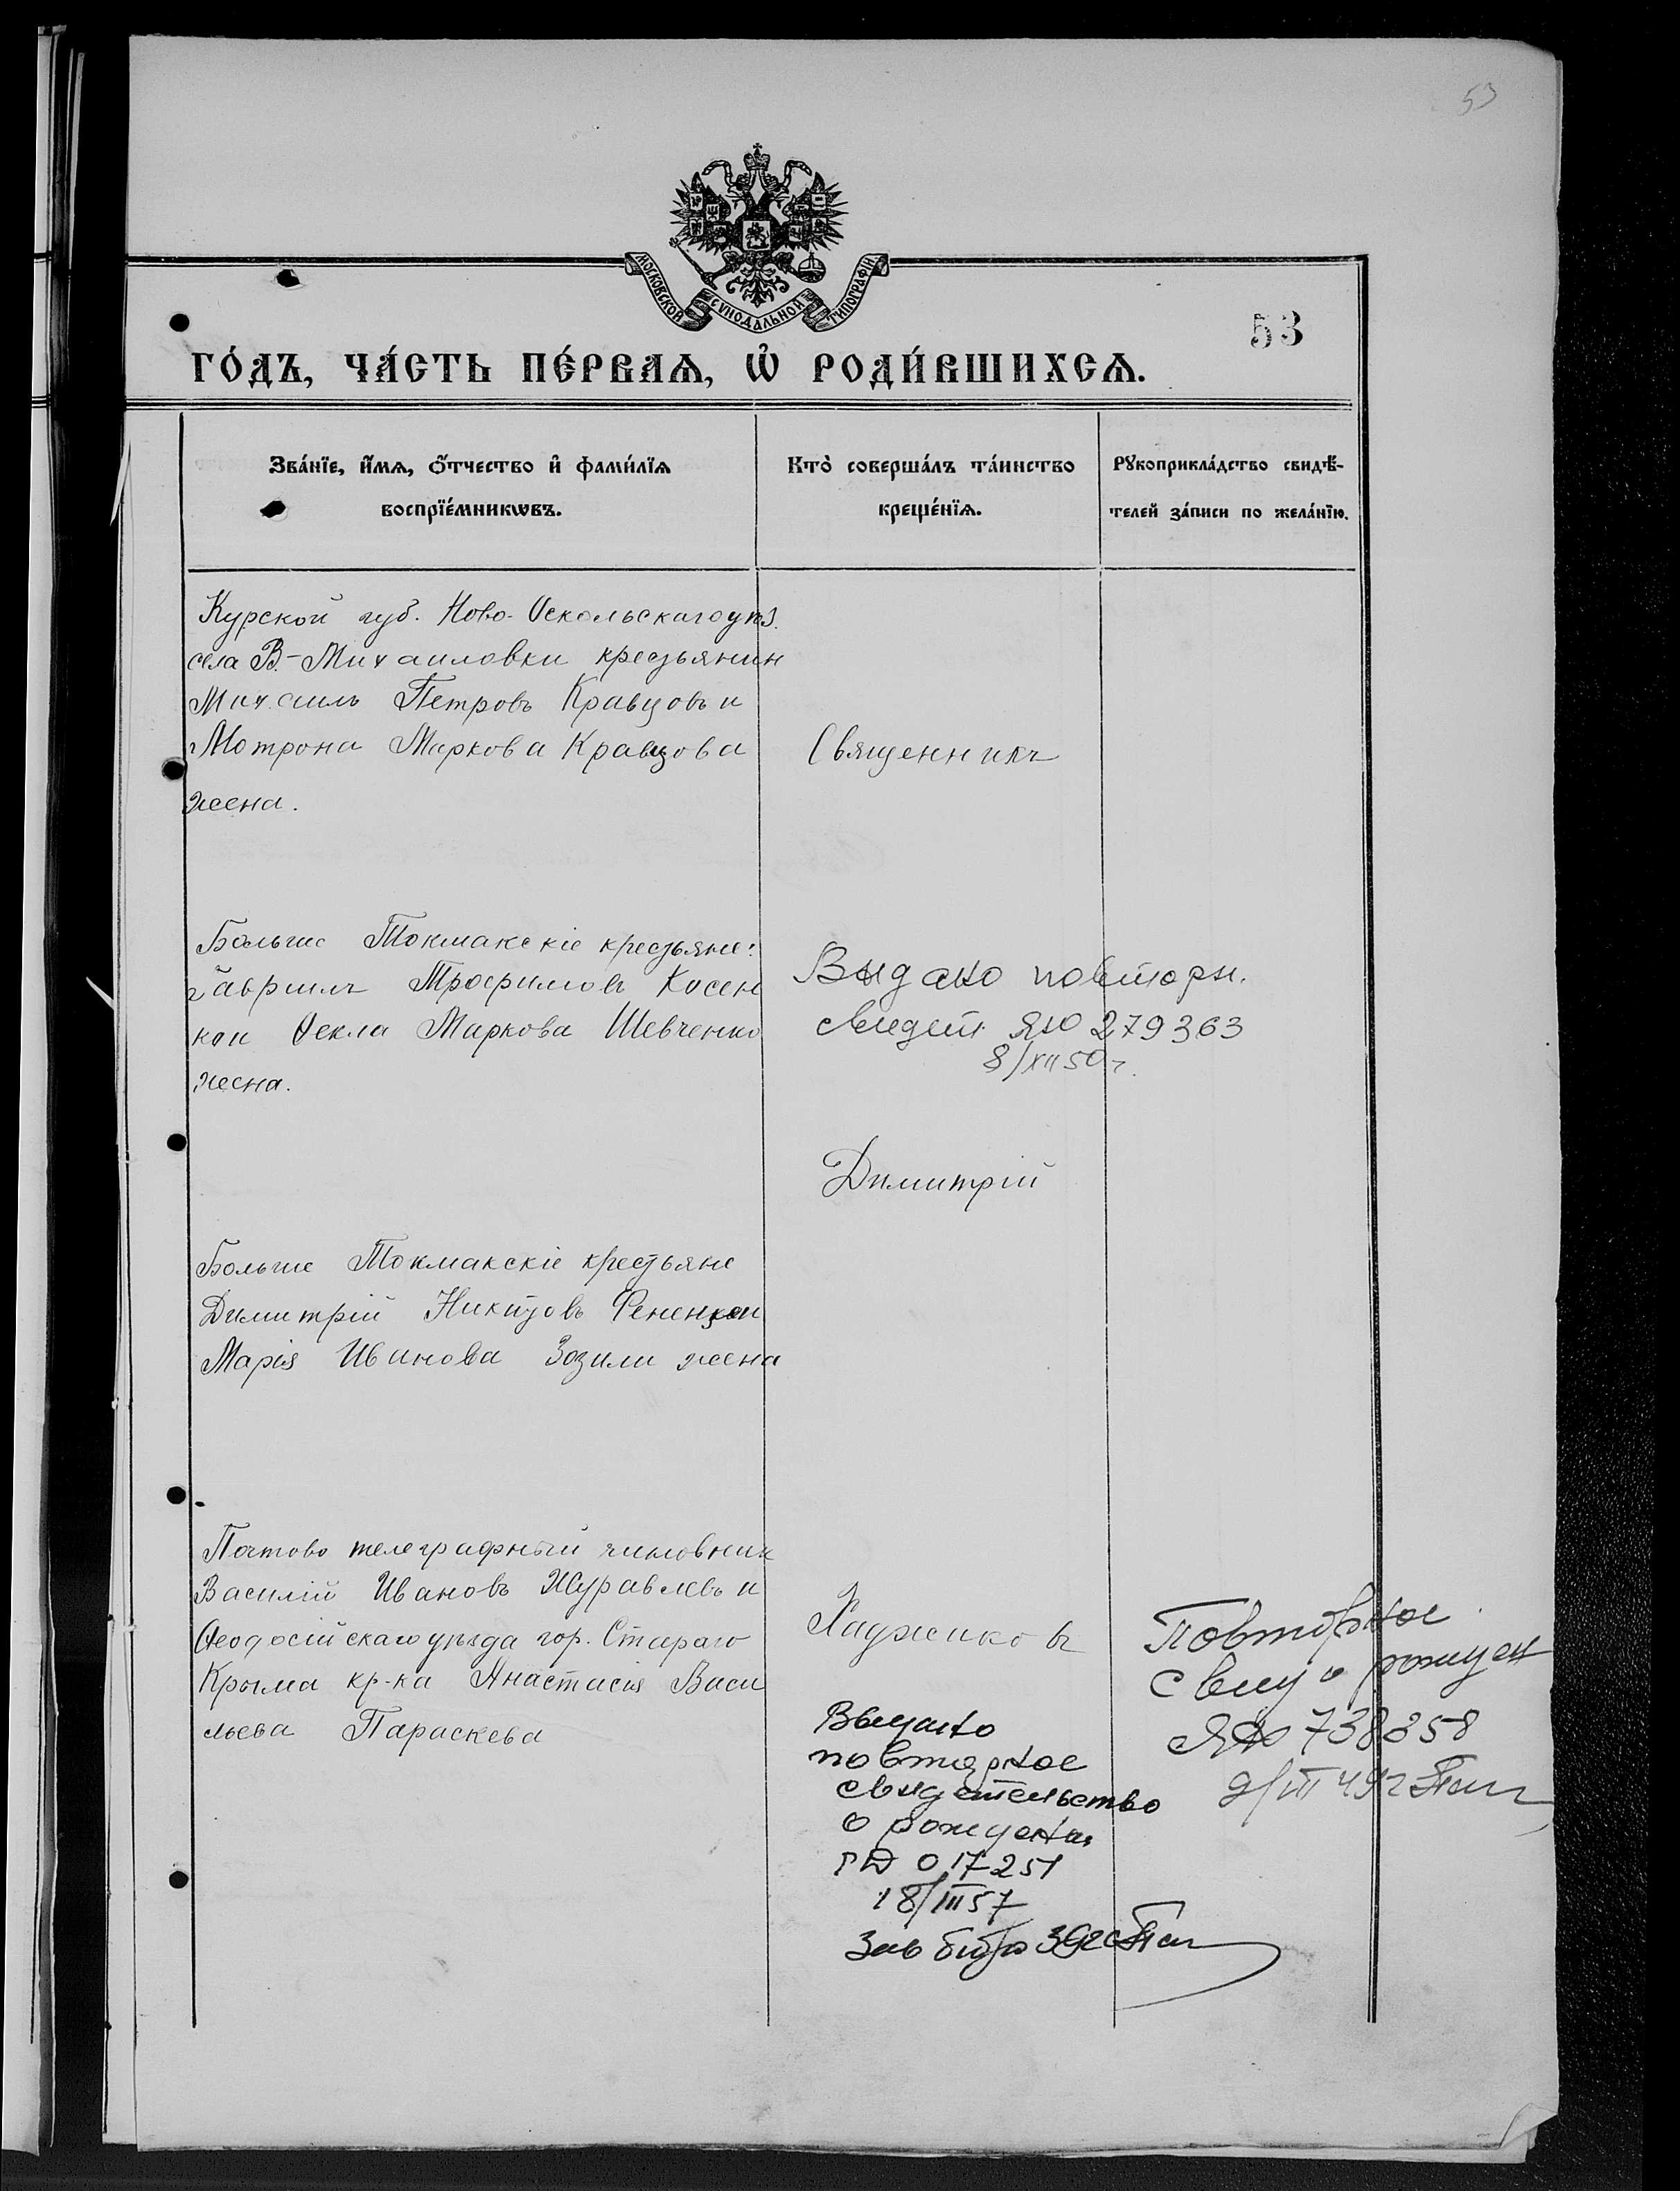 53
МОСКОВСКОЙ СѴНОДАЛЬНОЙ ТИПОГРАФІИ
53
ГО́ДЪ, ЧА́СТЬ ПЕ́РВАѦ, Ѡ҆ РОДИ́ВШИХСѦ.
Зва́нїе, и҆́мѧ, ѻ҆́тчество и҆ фами́лїѧ
воспрїе́мникѡвъ.
Кто̀ соверша́лъ та́инство
креще́нїѧ.
Рꙋкоприкла́дство свидѣ́-
телей за́писи по жела́нїю.
Курской губ. Ново-Оскольскаго уѣз.
села В.-Михаиловки крестьянин
Михаилъ Петровъ Кравцовъ и
Мотрона Маркова Кравцова
жена.
Священникъ
Больше Токмакскіе крестьяне:
Гавриилъ Трофимовъ Косен
ко и Ѳекла Маркова Шевченко
жена.
Выдано повторн.
свидет. ЯЮ 279363
8/XII 50 г.
Димитрій
Больше Токмакскіе крестьяне
Димитрій Никитовъ и
Марія Иванова жена
Почтово телеграфный чиновник
Василій Ивановъ Журавлевъ и
Ѳеодосійскаго уѣзда гор. Стараго
Крыма кр-ка Анастасія Васи
льева Параскева
Хаджиковъ
Выдано
повторное
свидетельство
о рождении
017251
18/III 57
Зав бюро ЗАГС
Повторное
свид о рожден
ЯЮ 738358
9/III 49 г